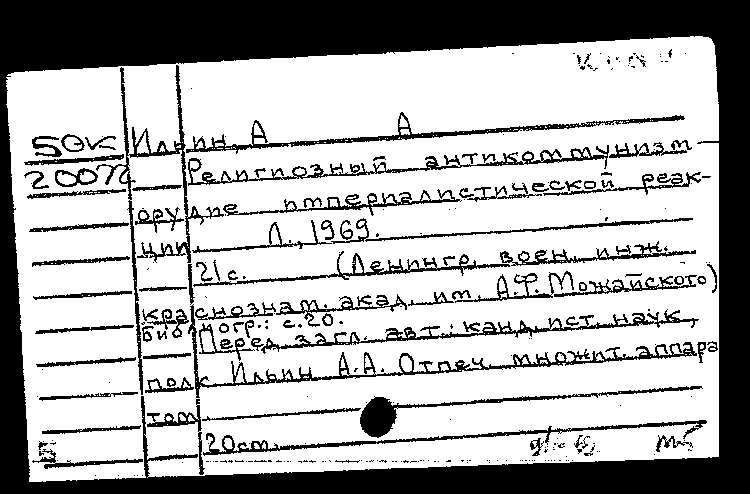 50К Ильин, А А
200 Религиозный антикоммунизм —
орудие империалистической реак-
ции. Л., 1969.
21с. (Ленингр. воен. инж.
краснознам. акад. им. А.Ф. Можайского)
Библиогр.: с.20.
Перед загл. авт.: канд. ист. наук,
полк. Ильин А.А. Отпеч. множит. аппара
том.
20см.